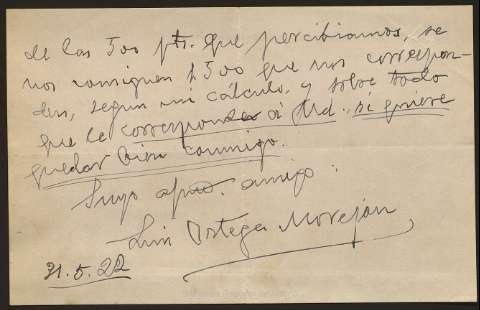 de las 500 pts. que percibíamos, se
nos consignen 1.500 que nos correspon-
den, segun mi cálculo, y sobre todo
que le corresponden á Ud., si quiere
quedar bien conmigo.
Suyo afmo. amigo:
Luis Ortega Morejón
31.5.22